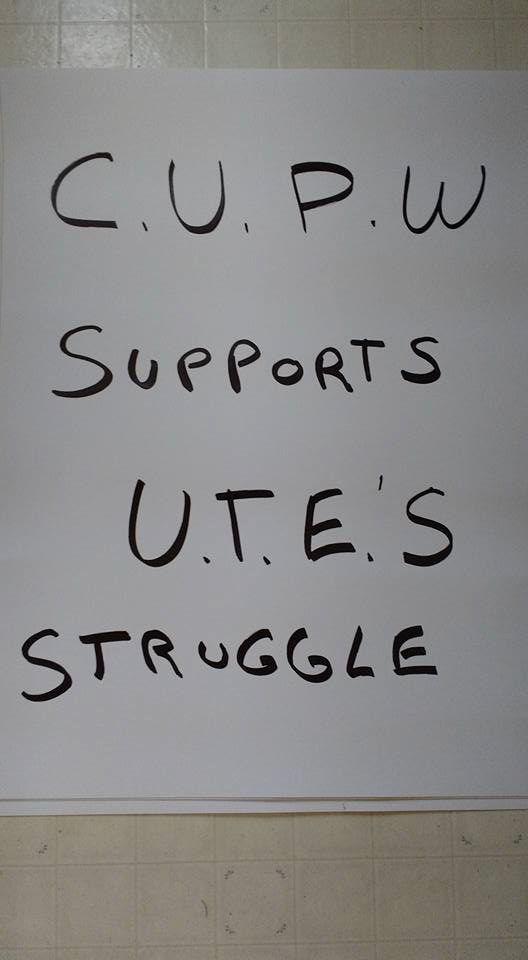 C.U.P.W
SUPPORTS
U.T.E.'S
STRUGGLE